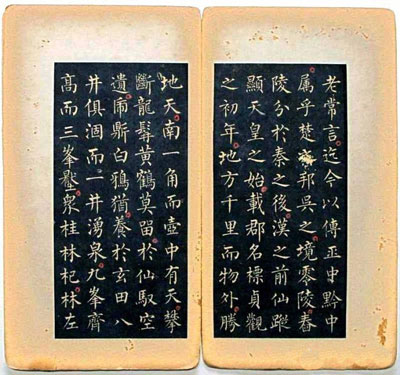 老常言迄今以傳正中黔中
属乎楚邦吳之境零陵舂
陵分於秦之後漢之前仙蹤
顯天皇之始載郡名標貞觀
之初年地方千里而物外勝
地天南一角而壺中有天攀
斷龍髯黃鶴莫留於仙馭空
遺鼎白鴉猶養於玄田八
井俱涸而一井湧泉九峯齊
高而三峯壓衆桂林杞林左